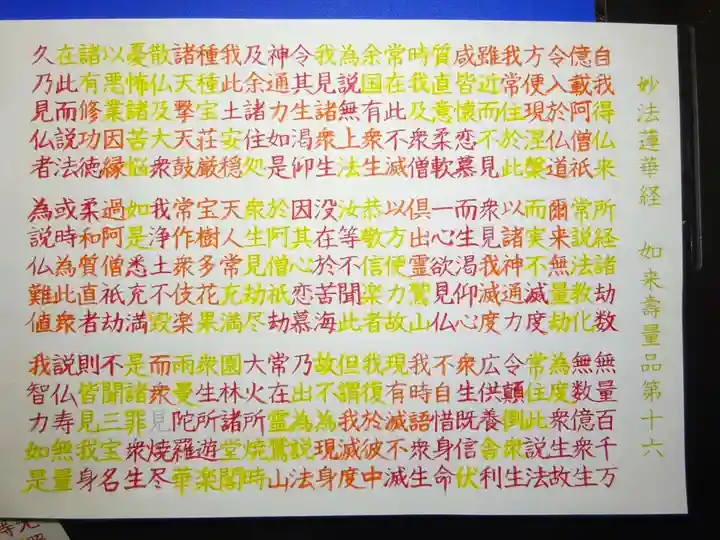 妙法蓮華経 如来壽量品第十六
自我得仏来 所経諸劫数 無量百千万
億載阿僧祇 常説法教化 無数億衆生
令入於仏道 爾来無量劫 為度衆生故
方便現涅槃 而実不滅度 常住此説法
我常住於此 以諸神通力 令顛倒衆生
雖近而不見 衆見我滅度 広供養舎利
咸皆懐恋慕 而生渇仰心 衆生既信伏
質直意柔軟 一心欲見仏 不自惜身命
時我及衆僧 俱出霊鷲山 我時語衆生
常在此不滅 以方便力故 現有滅不滅
余国有衆生 恭敬信楽者 我復於彼中
為説無上法 汝等不聞此 但謂我滅度
我見諸衆生 没在於苦海 故不為現身
令其生渇仰 因其心恋慕 乃出為説法
神通力如是 於阿僧祇劫 常在霊鷲山
及余諸住処 衆生見劫尽 大火所焼時
我此土安穏 天人常充満 園林諸堂閣
種種宝荘厳 宝樹多花果 衆生所遊楽
諸天撃天鼓 常作衆伎楽 雨曼陀羅華
散仏及大衆 我浄土不毀 而衆見焼尽
憂怖諸苦悩 如是悉充満 是諸罪衆生
以悪業因縁 過阿僧祇劫 不聞三宝名
諸有修功徳 柔和質直者 則皆見我身
在此而説法 或時為此衆 説仏寿無量
久乃見仏者 為説仏難値 我智力如是